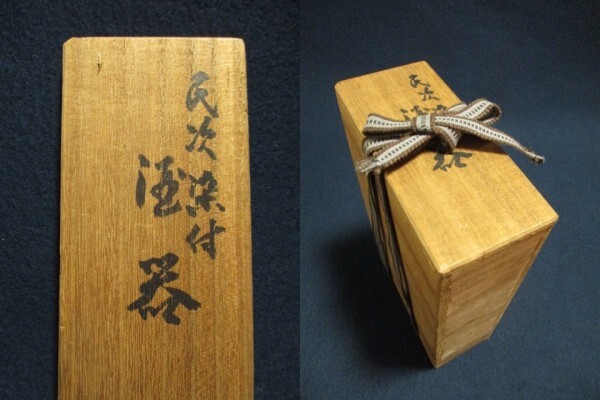 民次染付
酒器
民次染
酒
器